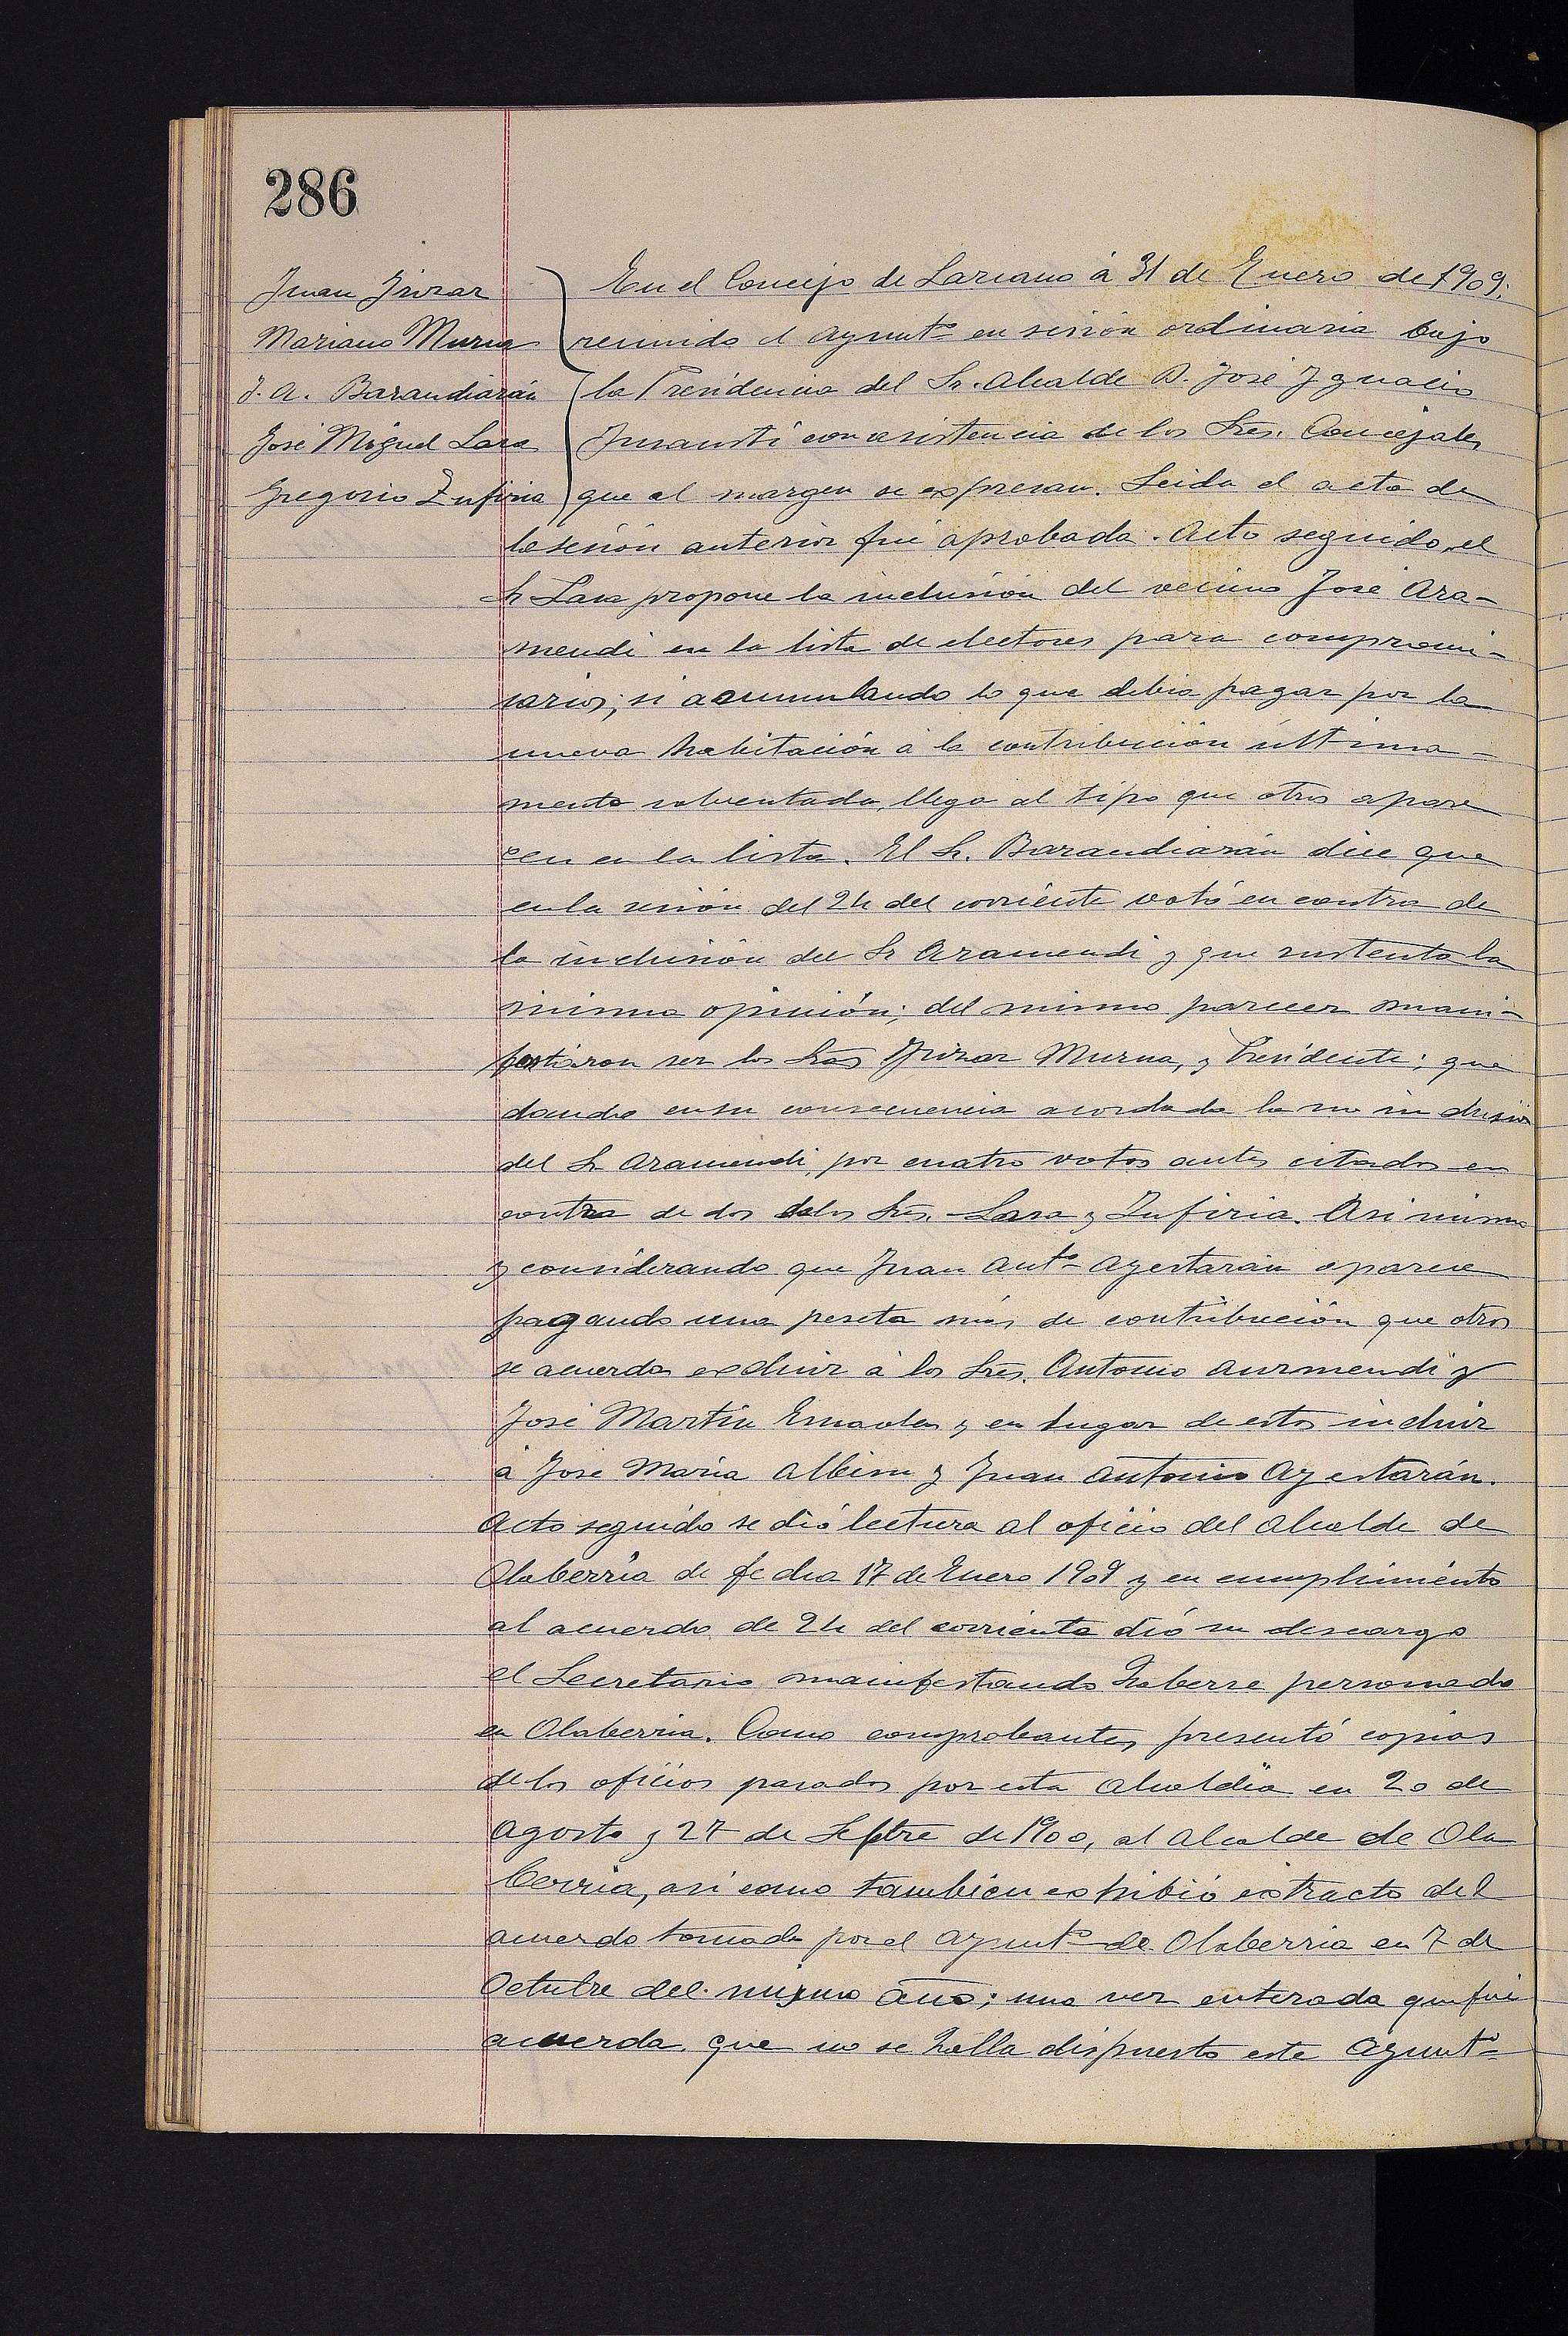 286
Juan Irizar
Mariano Murua
J. A. Barandiarán
José Miguel Lasa
Gregorio Zufiria
En el Concejo de Lazcano á 31 de Enero de 1909:
reunido el Ayuntº en sesión ordinaria bajo
la Presidencia del Sr. Alcalde D. José Ygnacio
con asistencia de los Sres. Concejales
que al margen se expresan. Leida el acta de
la sesión anterior fué aprobada. Acto seguido, el
Sr Lasa propone la inclusión del vecino José Ara-
mendi en la lista de electores para compromi-
sarios; si acumulando lo que debia pagar por la
nueva habitación á la contribución última-
mente solventada, llega al tipo que otros apare
cen en la lista. El Sr. Barandiarán dice que
en la sesión del 24 del corriente votó en contra de
la inclusión del Sr Aramendi y que sustenta la
misma opinión; del mismo parecer mani-
festaron ser los Sres Yrizar Murua, y Presidente; que
dando en su consecuencia acordada la no inclusión
del Sr Aramendi, por cuatro votos antes citados en
contra de dos delos Sres. Lasa y Zufiria. Asi mismo
y considerando que Juan Antº Ayestarán aparece
pagando una peseta más de contribución que otros
se acuerda excluir á los Sres. Antonio Aurmendi y
José Martín y en lugar de estos incluir
á José María Albisu y Juan Antonio Ayestarán.
Acto seguido se dió lectura al oficio del Alcalde de
Olaberría de fecha 17 de Enero 1909 y en cumplimiento
al acuerdo de 24 del corriente dió su descargo
el Secretario manifestando haberse personado
en Olaberria. Como comprobantes, presentó copias
de los oficios pasados por esta Alcaldía en 20 de
Agosto y 27 de Sepbre de 1900, al Alcalde de Ola
berria, asi como tambien exhibió extracto del
acuerdo tomado por el Ayuntº de Olaberria en 7 de
Octubre del mismo año; una vez enterada que fué
acuerda que no se halla dispuesto este Ayuntº